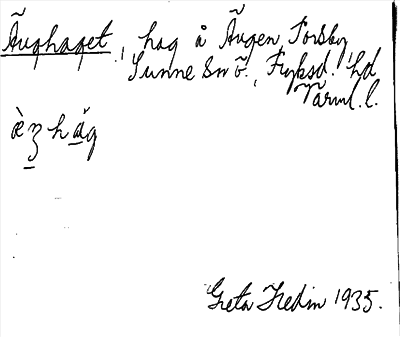 Ãughaget, hag å Ãugen, Torsby,
Sunne sn ö., Fryksd. hd
Värml. l.
æ̀ʒhág
Greta Hedin 1935.